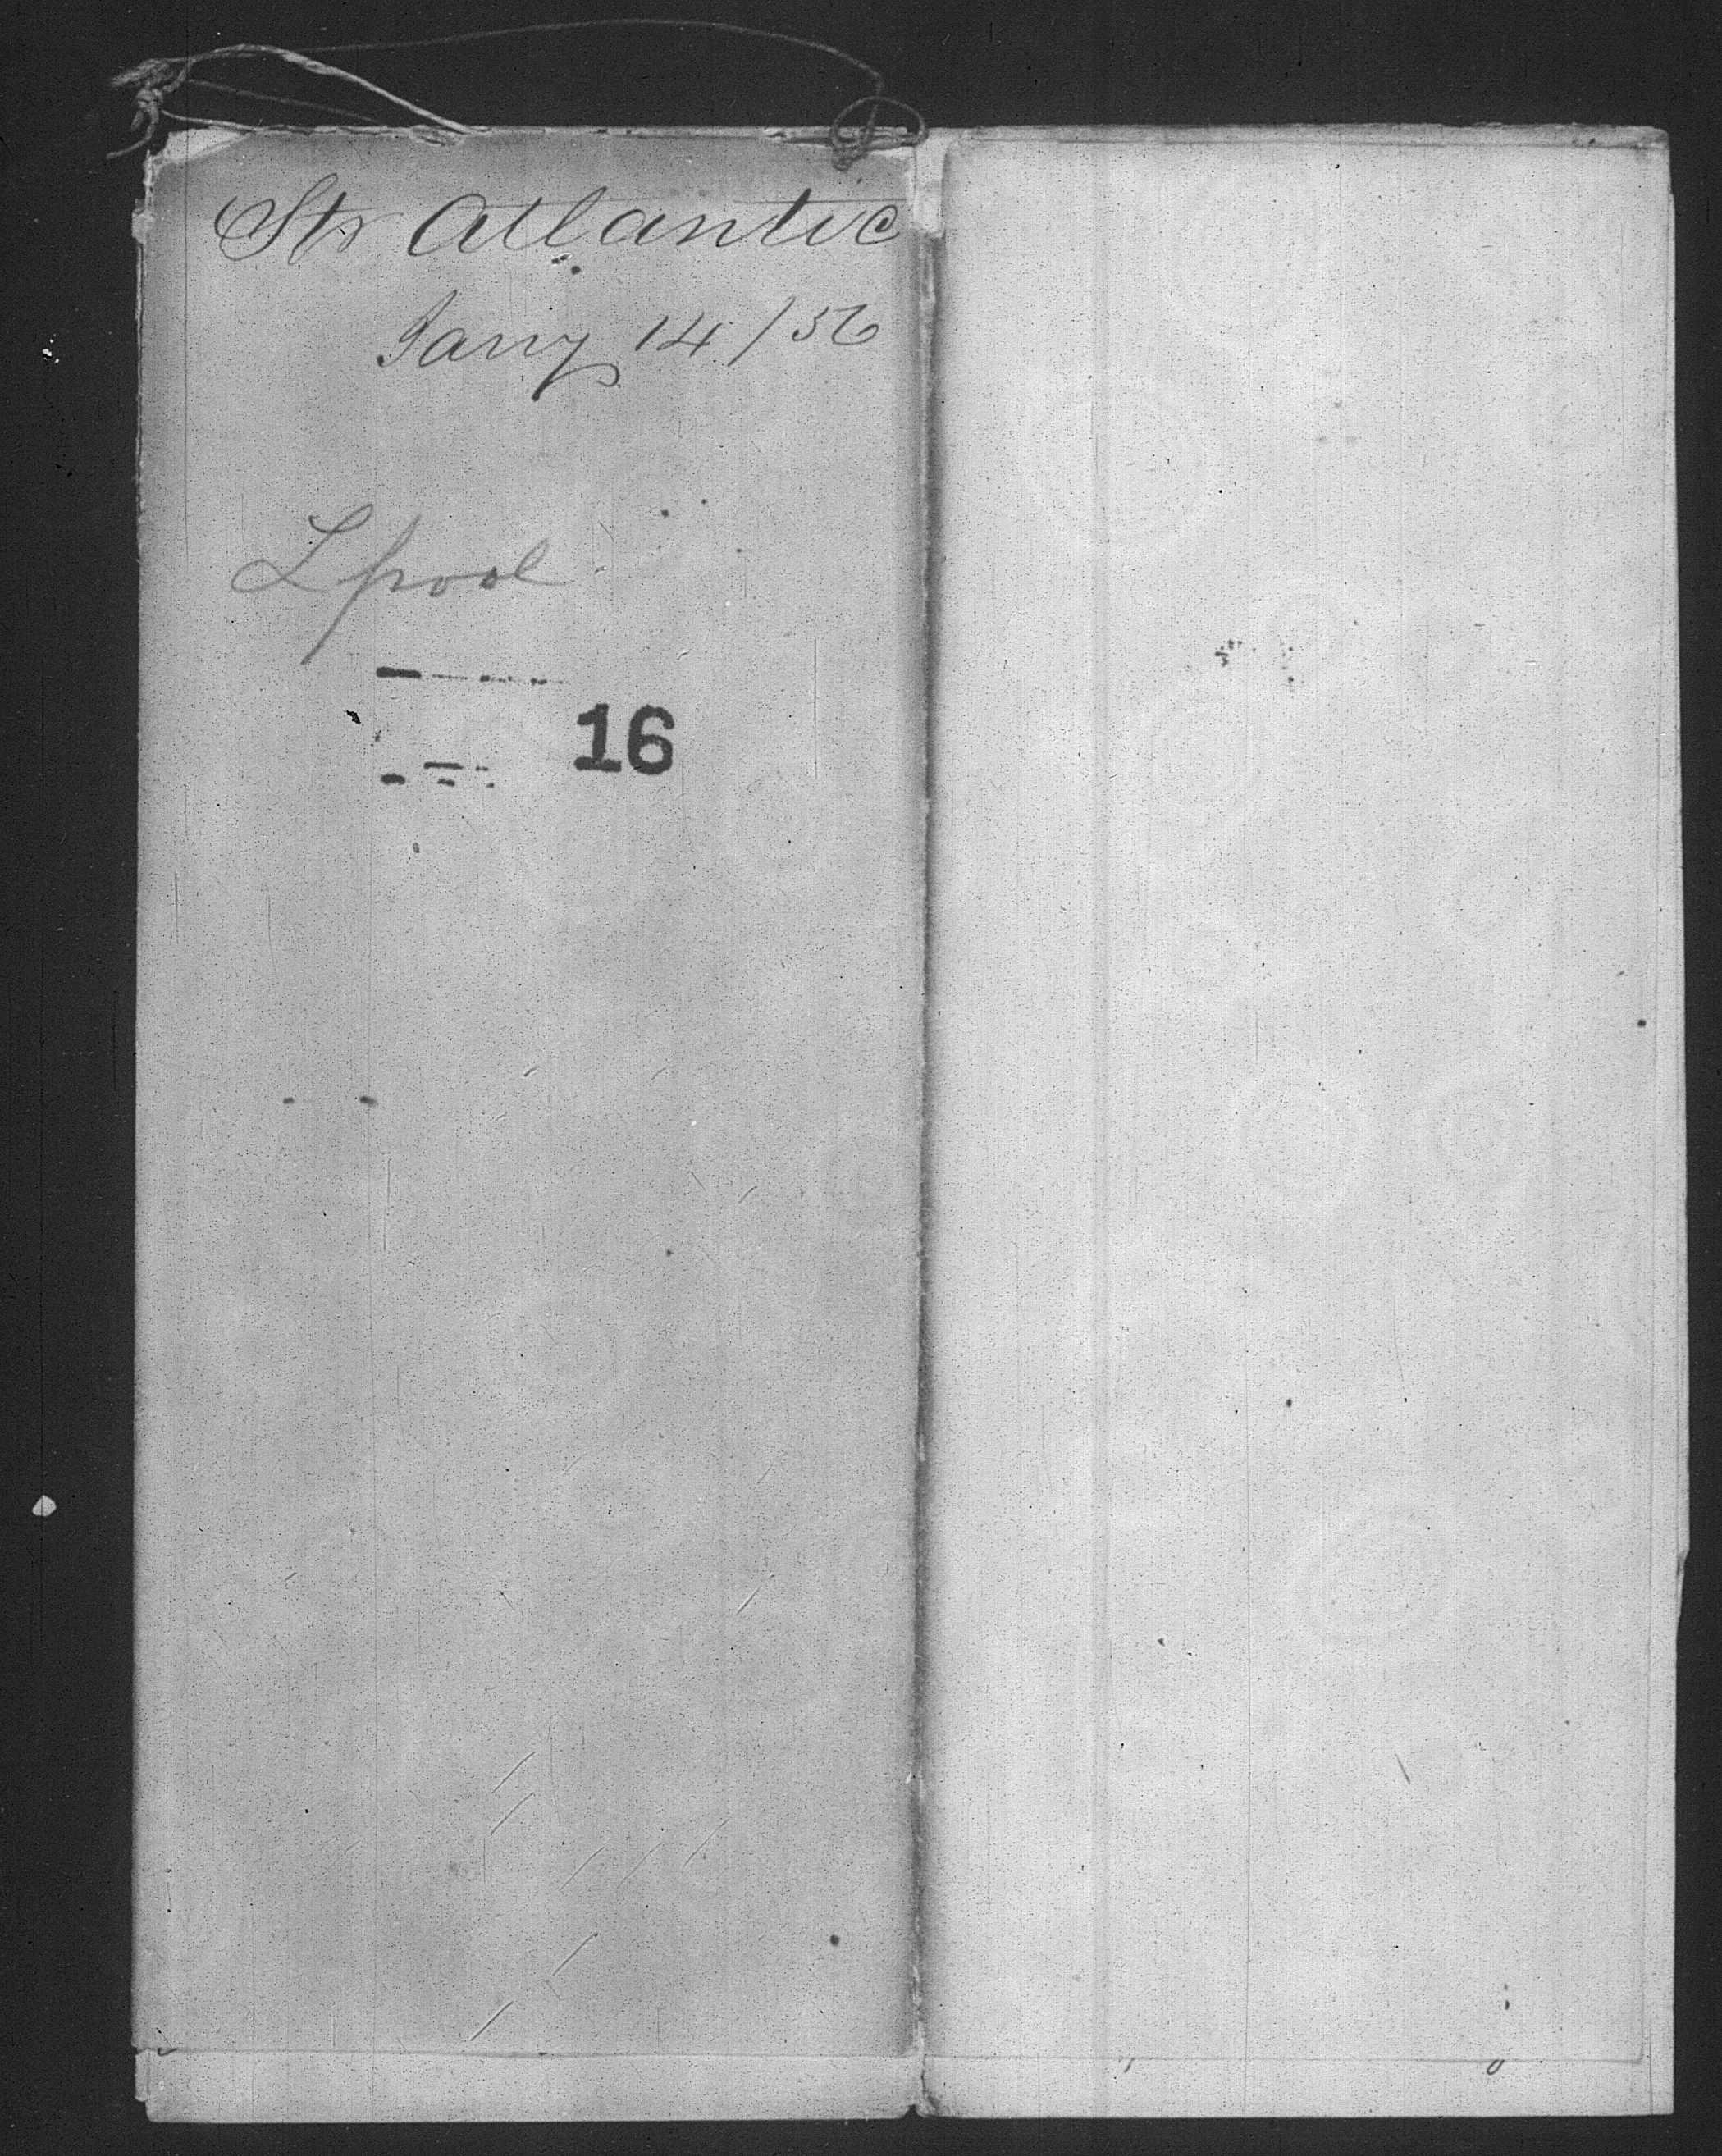 Str Atlantic
Jany 14/56
Lpool
16